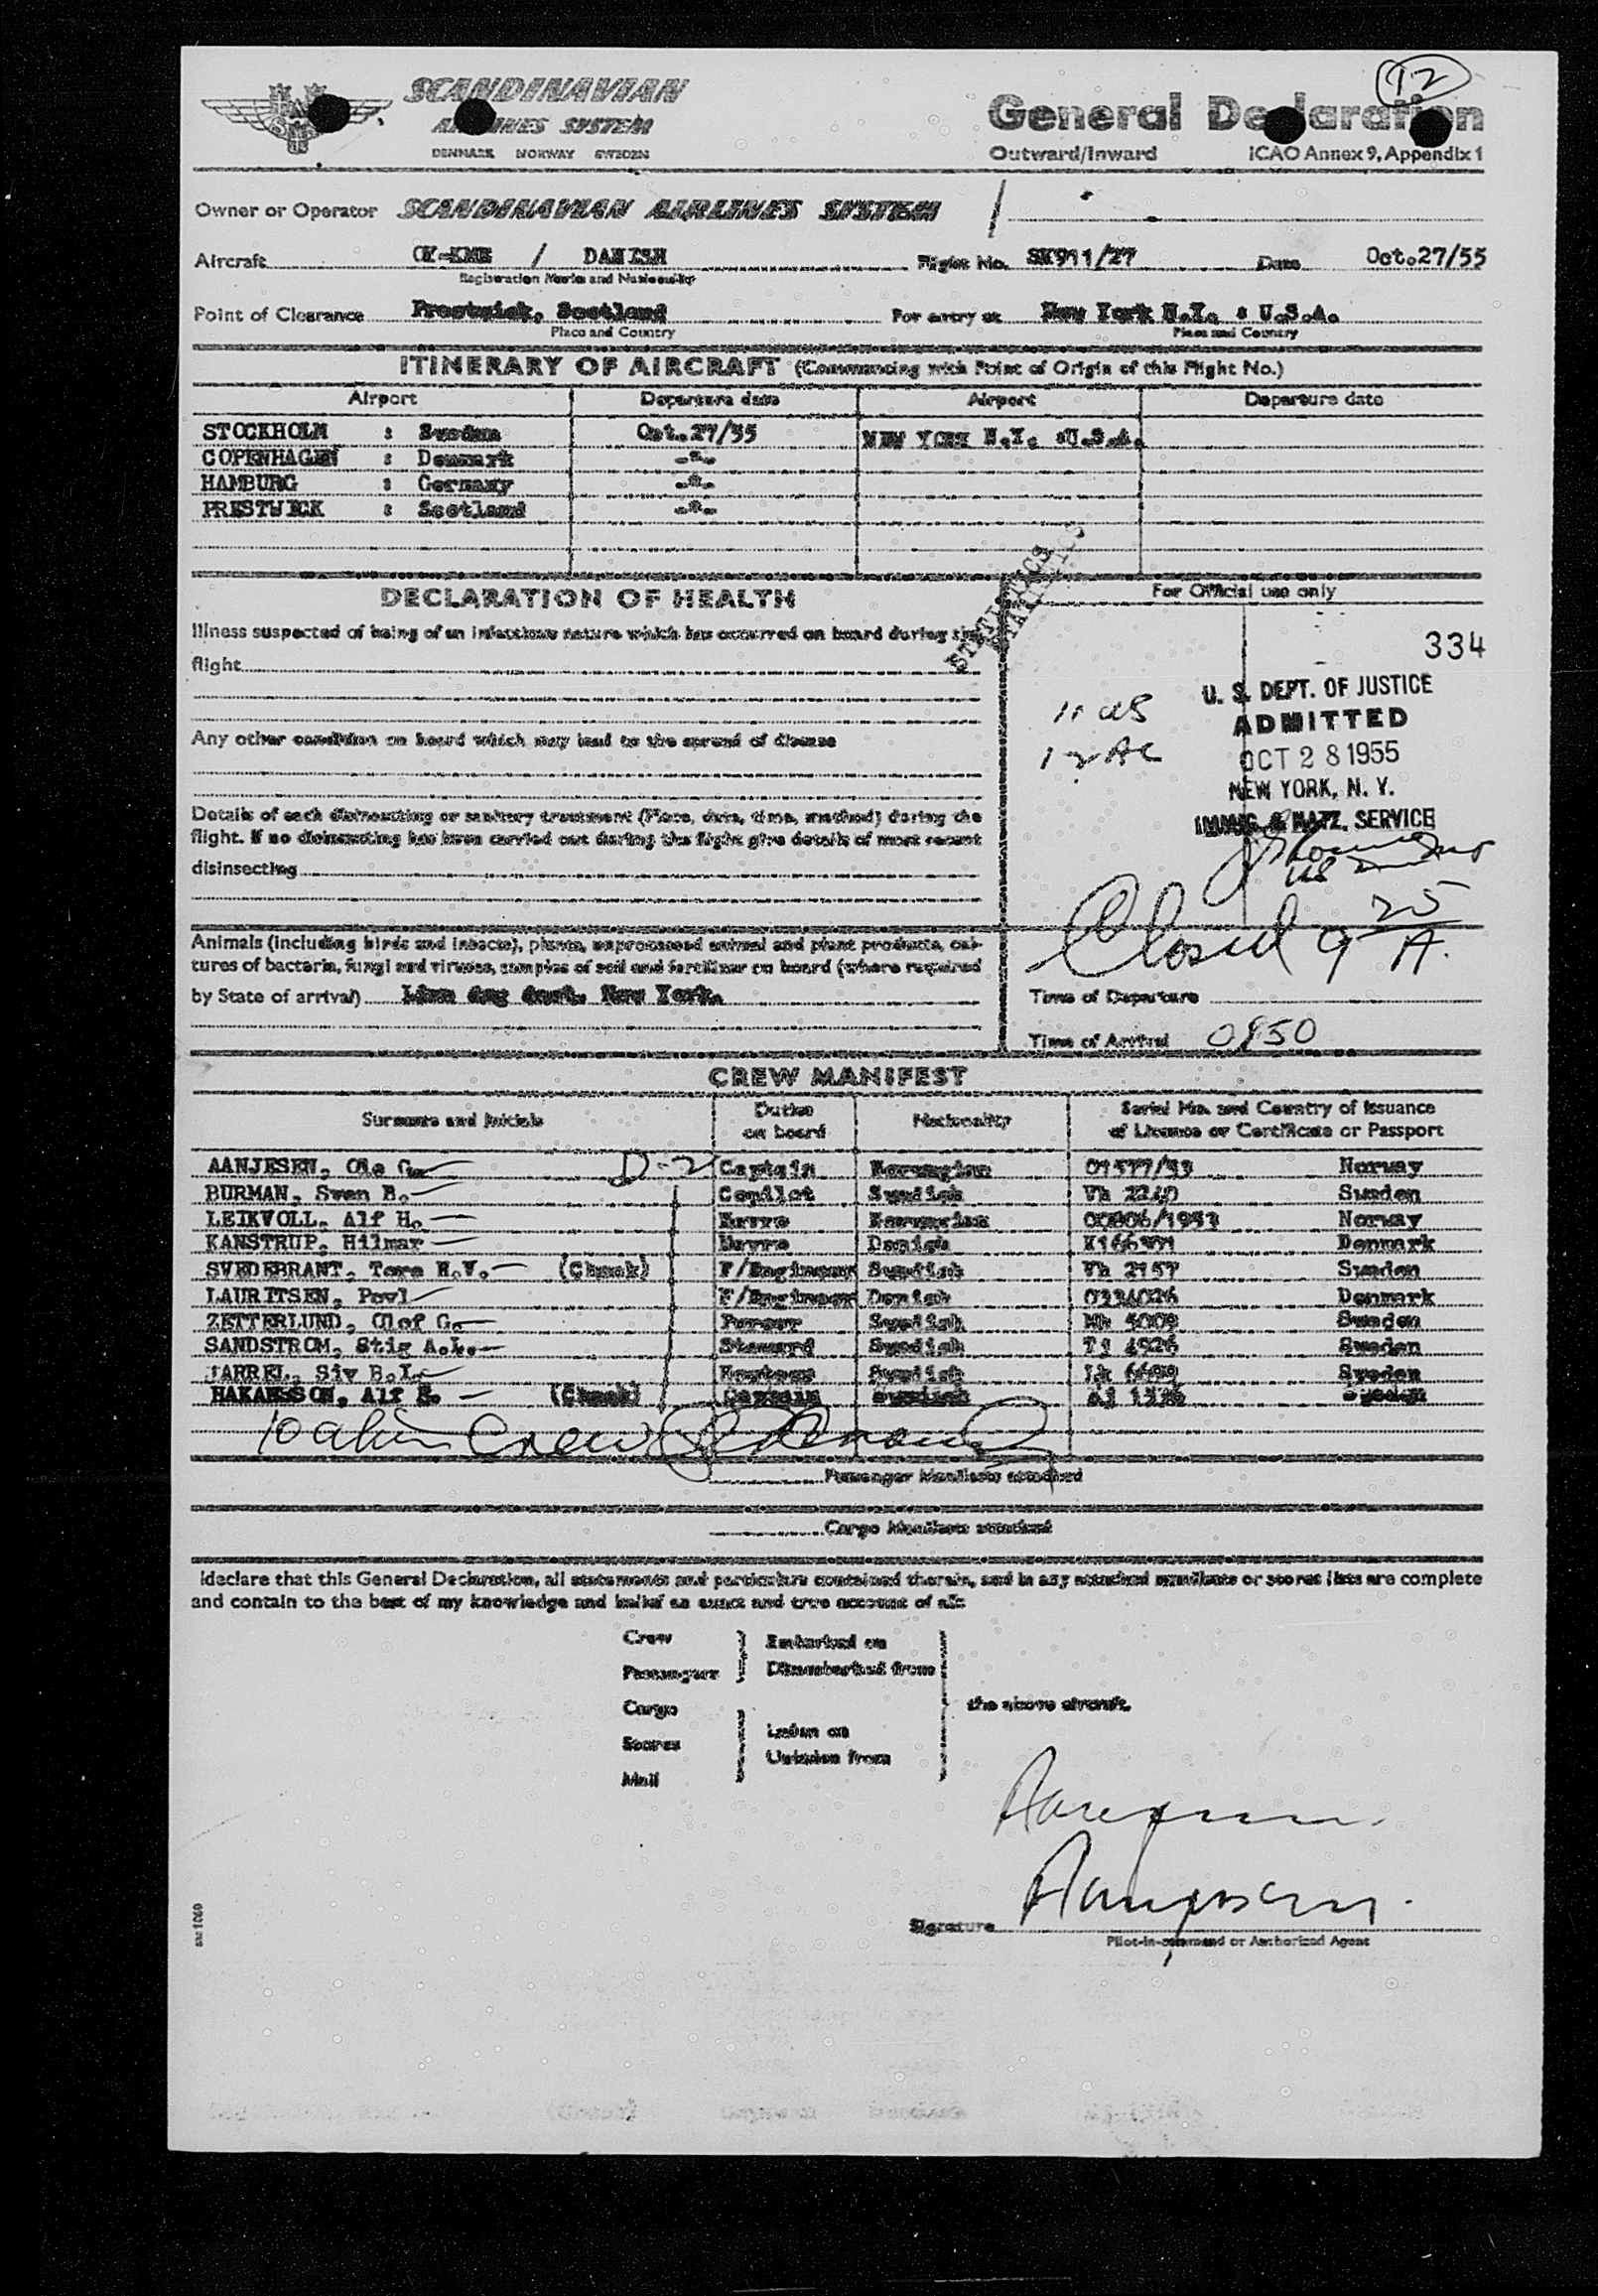 12
SCANDINAVIAN
AIRLINES SYSTEM
DENMARK NORWAY SWEDEN
General Declaration
Outward/Inward ICAO Annex 9, Appendix 1
Owner or Operator SCANDINAVIAN AIRLINES SYSTEM
Aircraft / DANISH Flight No. SK911/27 Date Oct.27/55
Registration Marks and Nationality
Point of Clearance Prestwick, Scotland For entry at New York N.Y. : U.S.A.
Place and Country Place and Country
ITINERARY OF AIRCRAFT (Commencing with Point of Origin of this Flight No.)
Airport Departure date Airport Departure date
STOCKHOLM : Sweden Oct.27/55 NEW YORK N.Y. :U.S.A.
COPENHAGEN : Denmark -"-
HAMBURG : Germany -"-
PRESTWICK : Scotland -"-
STATISTICS
DECLARATION OF HEALTH
For Official use only
Illness suspected of being of an infectious nature which has occurred on board during the
flight
334
U. S. DEPT. OF JUSTICE
ADMITTED
OCT 28 1955
NEW YORK, N. Y.
IMMIG. & NATZ. SERVICE
Any other condition on board which may lead to the spread of disease
Details of each disinsecting or sanitary treatment (Place, date, time, method) during the
flight. If no disinsecting has been carried out during the flight give details of most recent
disinsecting
Closed 9 25 A.
Animals (including birds and insects), plants, unprocessed animal and plant products, cul-
tures of bacteria, fungi and viruses, samples of soil and fertilizer on board (where required
by State of arrival) New York.
Time of Departure
Time of Arrival 0850
CREW MANIFEST
Surname and Initials Duties on board Nationality Serial No. and Country of Issuance of Licence or Certificate or Passport
AANJESEN, Ole G. D-2 Captain Norwegian Norway
BURMAN, Sven B. Copilot Swedish Sweden
LEIKVOLL, Alf H. Norwegian Norway
KANSTRUP, Hilmar Danish Denmark
SVEDEBRANT, Tore H.V. (Check) F/Engineer Swedish Vh 2157 Sweden
LAURITSEN, Povl F/Engineer Danish Denmark
ZETTERLUND, Olof G. Purser Swedish Sweden
SANDSTROM, Stig A.L. Steward Swedish Sweden
JARREL, Siv B.I. Hostess Swedish Sweden
HAKANSSON, Alf E. (Check) Captain Swedish Sweden
10 alien Crew
Passenger Manifests attached
Cargo Manifests attached
I declare that this General Declaration, all statements and particulars contained therein, and in any attached manifests or stores lists are complete
and contain to the best of my knowledge and belief an exact and true account of all:
Crew
Passengers
Embarked on
Disembarked from
Cargo
Stores
Mail
Laden on
Unladen from
the above aircraft.
Aanjesen.
Signature Aanjesen.
Pilot-in-command or Authorized Agent